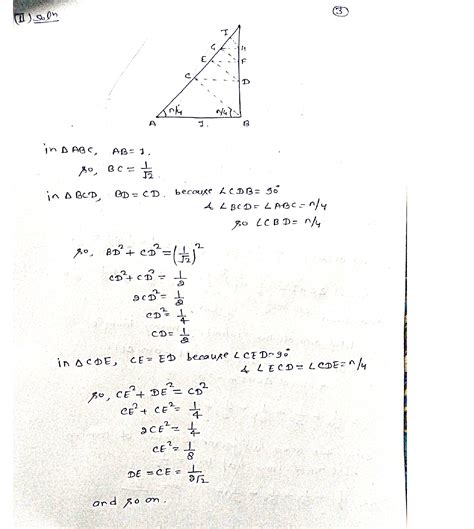 (II) soln
(3)
I
G H
E F
C D
π/4 π/4
A 1. B
in △ABC, AB=1.
so, BC = 1/√2
in △BCD, BD=CD. because ∠CDB=90°
& ∠BCD=∠ABC=π/4
so ∠CBD=π/4
so, BD²+CD²=(1/√2)²
CD²+CD²=1/2
2CD²=1/2
CD²=1/4
CD=1/2
in △CDE, CE=ED because ∠CED=90°
& ∠ECD=∠CDE=π/4
so, CE²+DE²=CD²
CE²+CE²=1/4
2CE²=1/4
CE²=1/8
DE=CE=1/2√2
and so on.